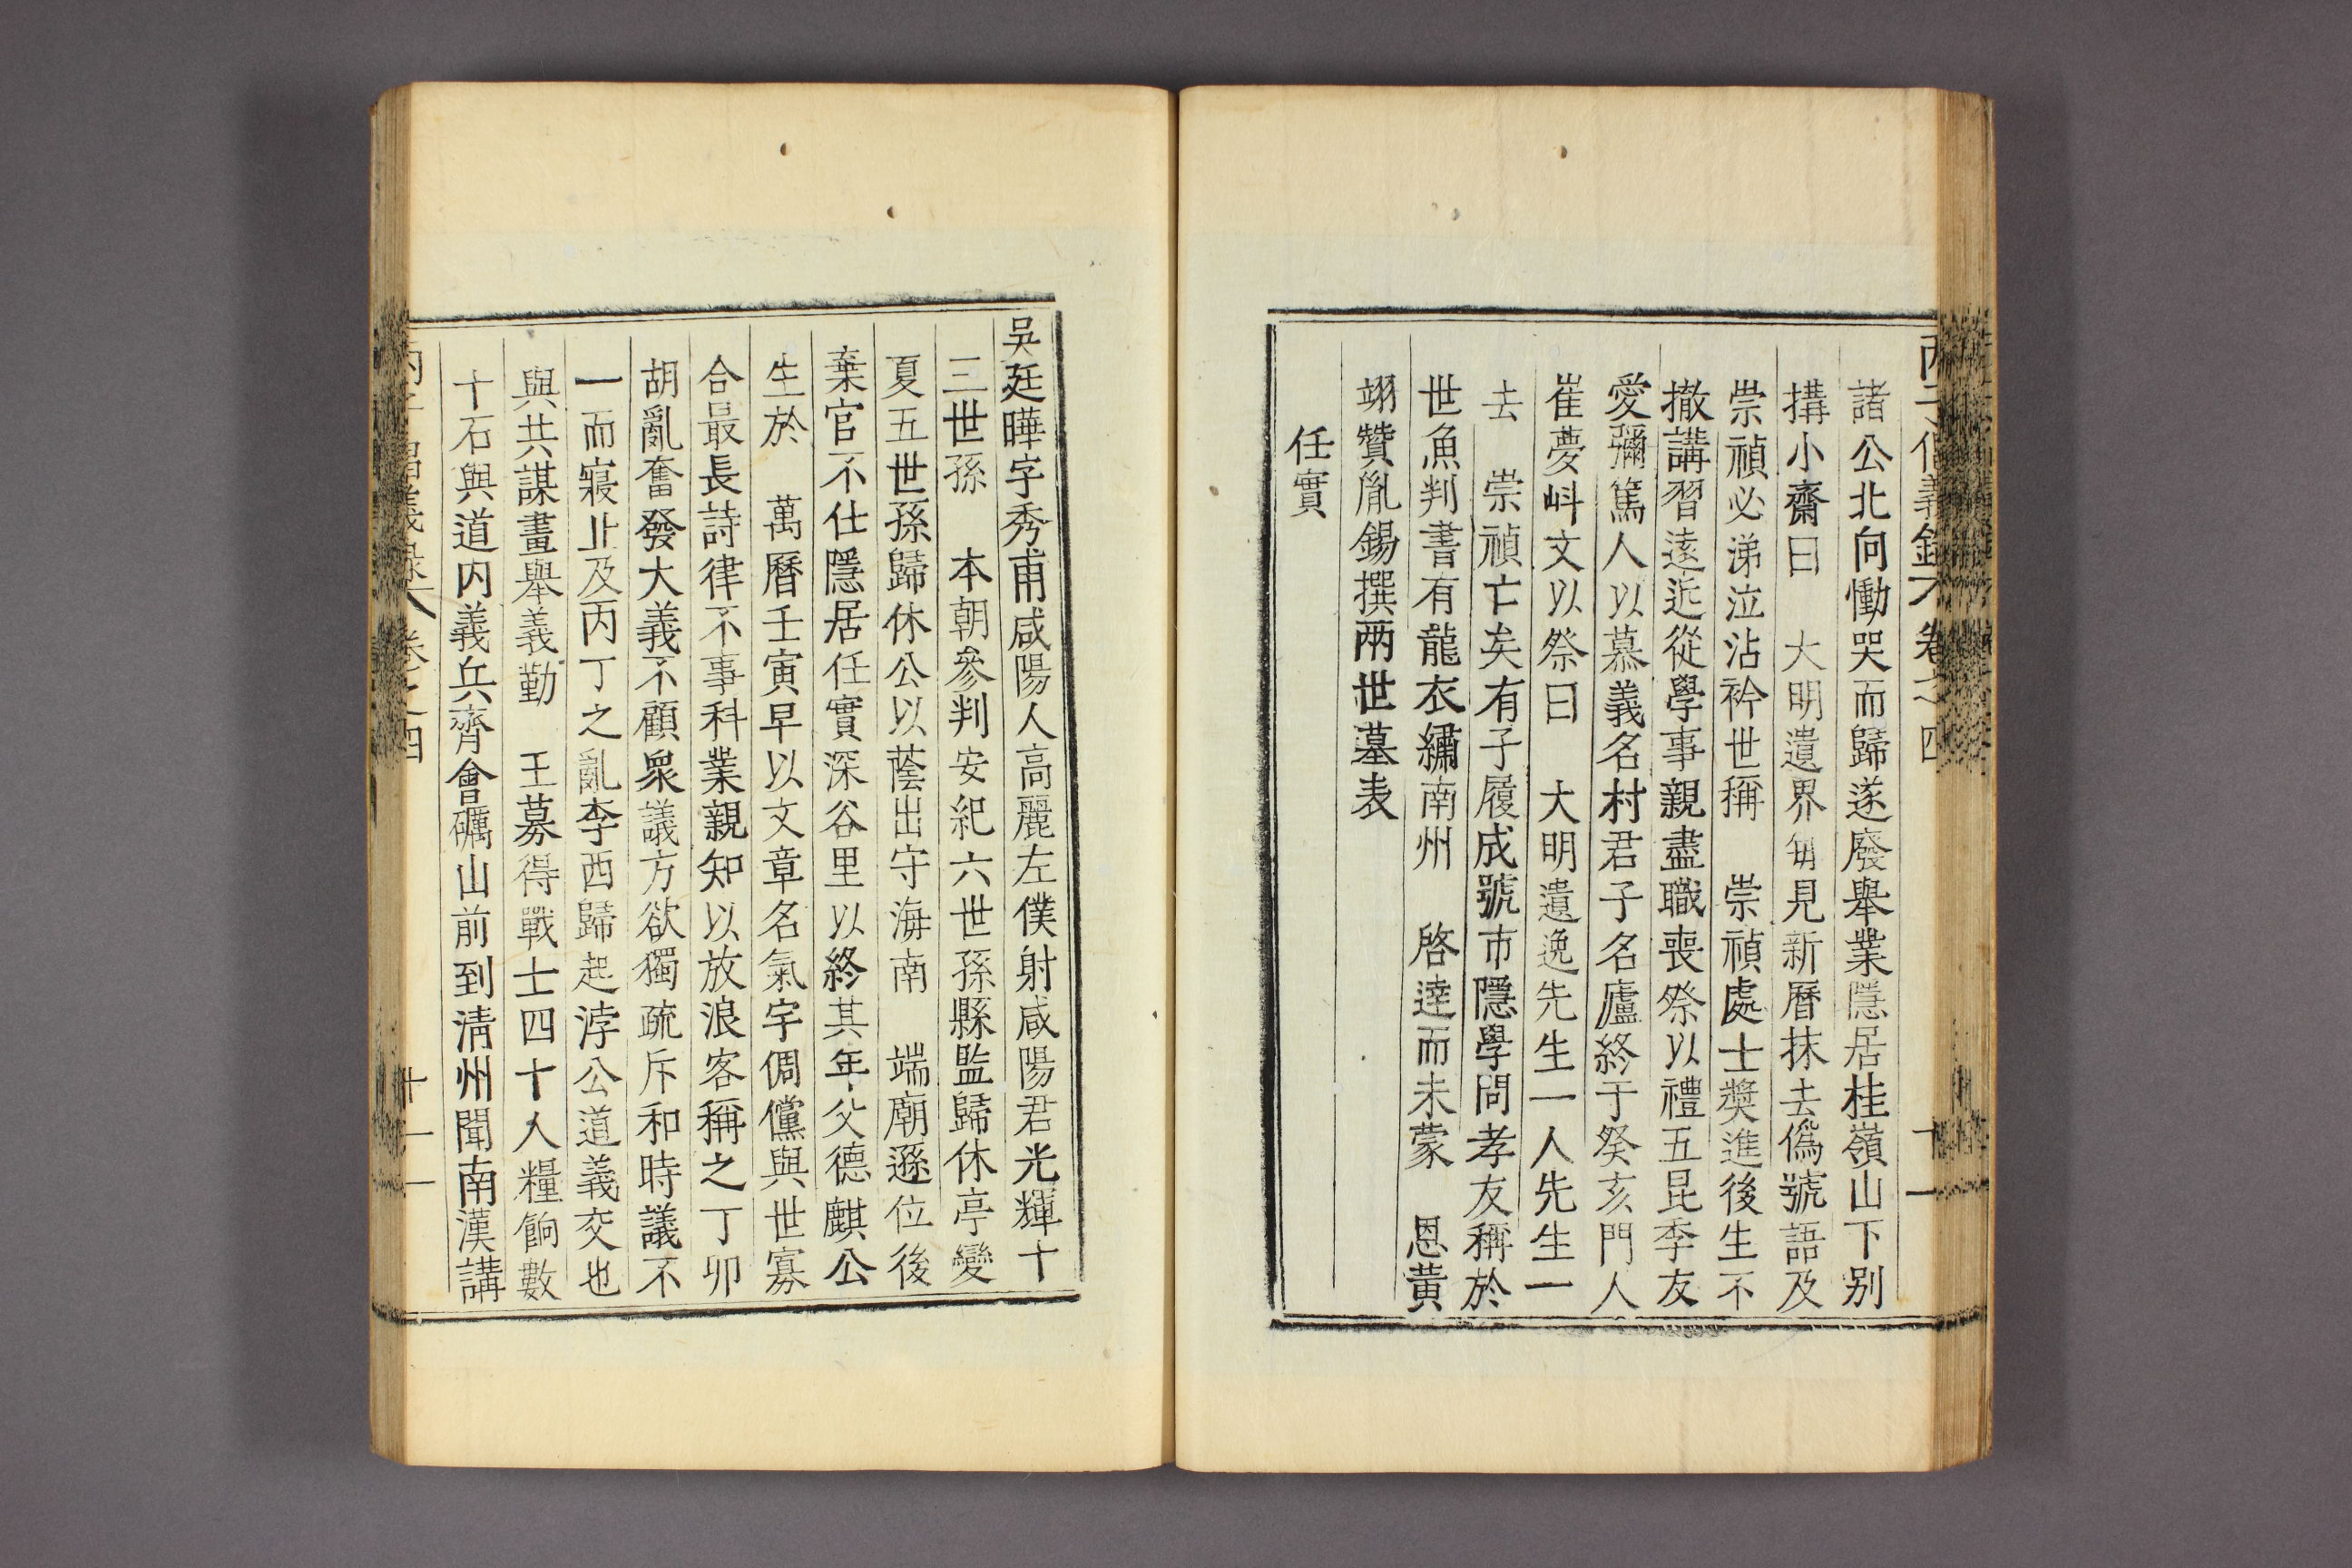 丙子倡義錄 卷之四 十一
諸公北向慟哭而歸遂廢舉業隱居桂嶺山下別
搆小齋曰 大明遺界每見新曆抹去僞號語及
崇禎必涕泣沾衿世稱 崇禎處士奬進後生不
撤講習遠近從學事親盡職喪祭以禮五昆季友
愛彌篤人以慕義名村君子名廬終于癸亥門人
崔夢㞳文以祭曰 大明遺逸先生一人先生一
去 崇禎亡矣有子履成號市隱學問孝友稱於
世魚判書有龍衣繡南州 啓達而未蒙 恩黃
翊贊胤錫撰兩世墓表
任實
吳廷曄字秀甫咸陽人高麗左僕射咸陽君光輝十
三世孫 本朝參判安紀六世孫縣監歸休亭變
夏五世孫歸休公以蔭出守海南 端廟遜位後
棄官不仕隱居任實深谷里以終其年父德麒公
生於 萬曆壬寅早以文章名氣宇倜儻與世寡
合最長詩律不事科業親知以放浪客稱之丁卯
胡亂奮發大義不顧衆議方欲獨疏斥和時議不
一而寢止及丙丁之亂李西歸起浡公道義交也
與共謀畫舉義勤 王募得戰士四十人糧餉數
十石與道內義兵齊會礪山前到淸州聞南漢講
丙子倡義錄 卷之四 十一